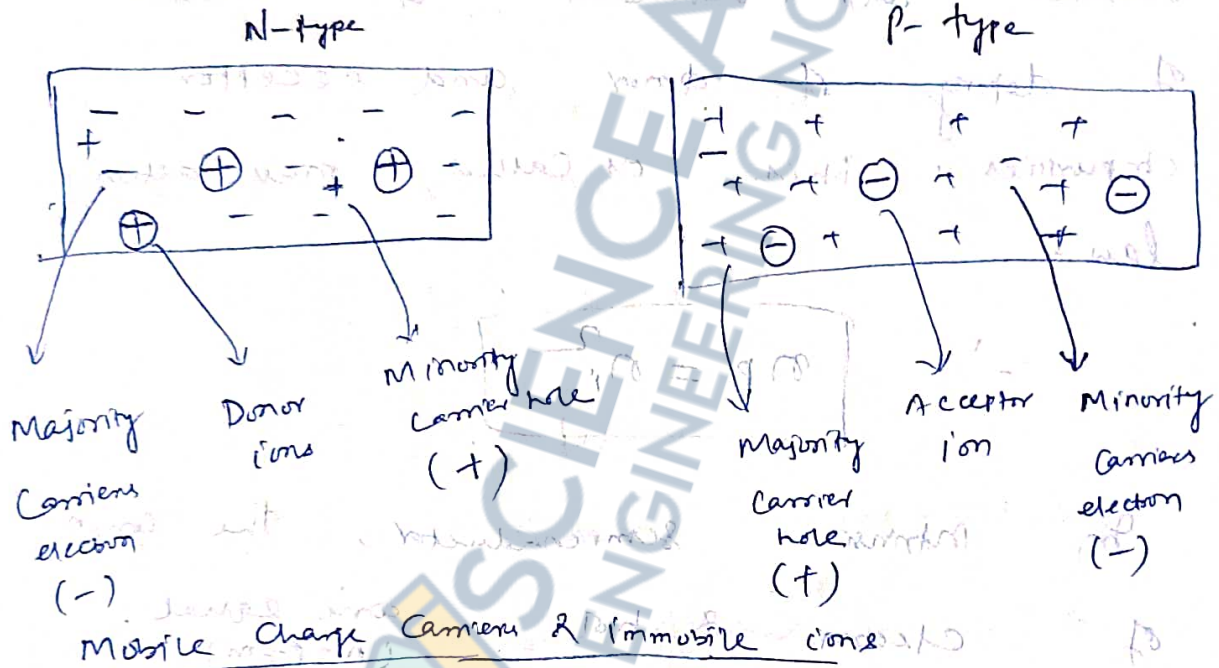 N-type
P- type
Majority
Carriers
electron
(-)
Donor
ions
Minority
Carrier hole
(+)
Majority
Carrier
hole
(+)
Acceptor
ion
Minority
Carriers
electron
(-)
Mobile Charge Carriers & immobile ions
SCIENCE
ENGINEERING